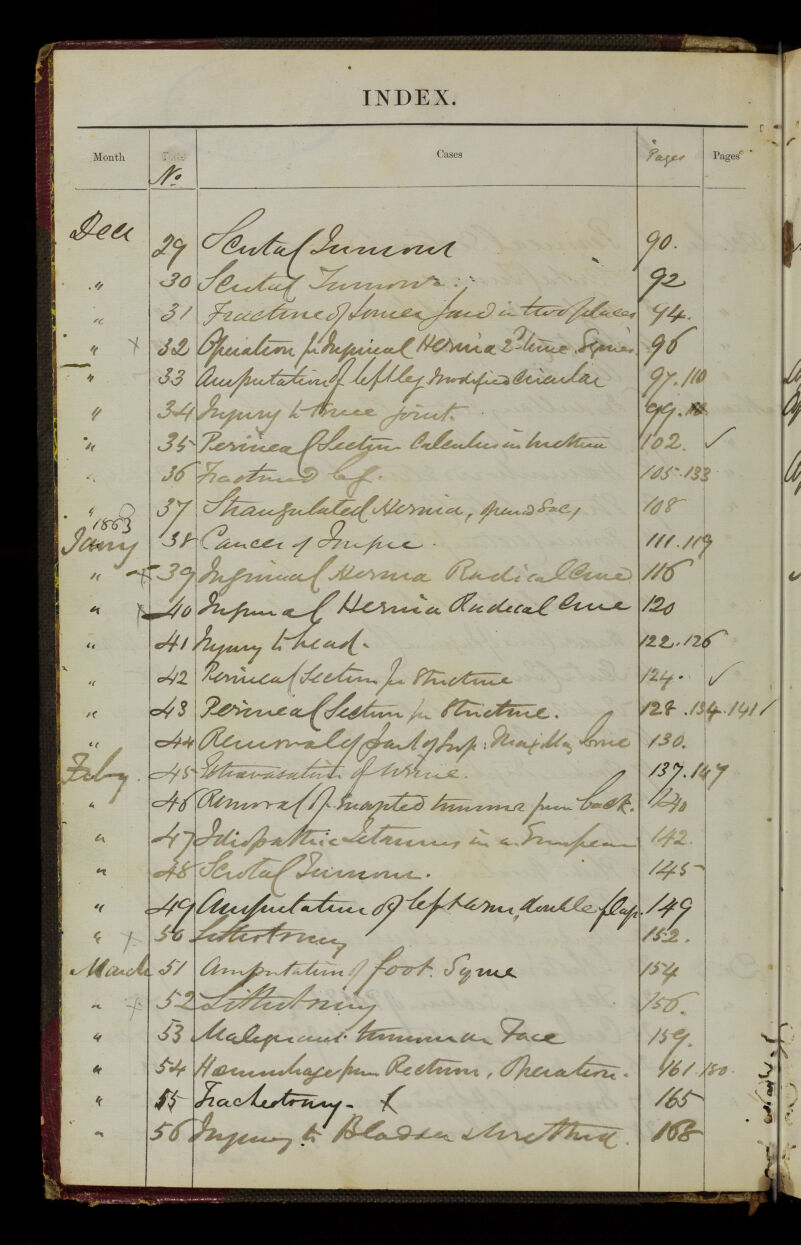 INDEX.
Month No Cases Pages Pages
Decr 29 Scrotal Tumour 90.
" 30 Scrotal Tumour 92
" 31 Fracture of lower jaw in two places 94.
" x 32 Operation for Inguinal Hernia 2nd time Symes 96
" 33 Amputation of left leg modified circular 97.110
" 34 Injury to knee joint. 99.
" 35 Perineal Section Calculus in Urethra 102. ✓
" 36 Fractured leg. 105.133
" 37 Strangulated Hernia, opened Sac, 108
1863
Jany 38 Cancer of Tongue. 111.119
" x 39 Inguinal Hernia Radical Cure 116
" x 40 Inguinal Hernia Radical Cure 120
" 41 Injury to head. 122.126
" 42 Perineal Section for Stricture 124. ✓
" 43 Perineal Section for Stricture. 128.134.141 /
" 44 Removal of part of Sup: Maxillary bone 130.
Feby. 45 Extravasation of Urine. 137.147
" 46 Removal of encysted tumour from back. 140
" 47 Idiopathic Tetanus in a European 142.
" 48 Scrotal Tumour. 145
" 49 Amputation of left arm, double flap. 149
" x 50 Lithotomy 152.
March 51 Amputation of foot. Syme 154
" x 52 Lithotomy 156.
" 53 Malignant tumour on Face 159.
" 54 Hæmorrhage from Rectum, Operation. 161.180
" 55 Tracheotomy. 165
" 56 Injury to Bladder & Urethra. 168